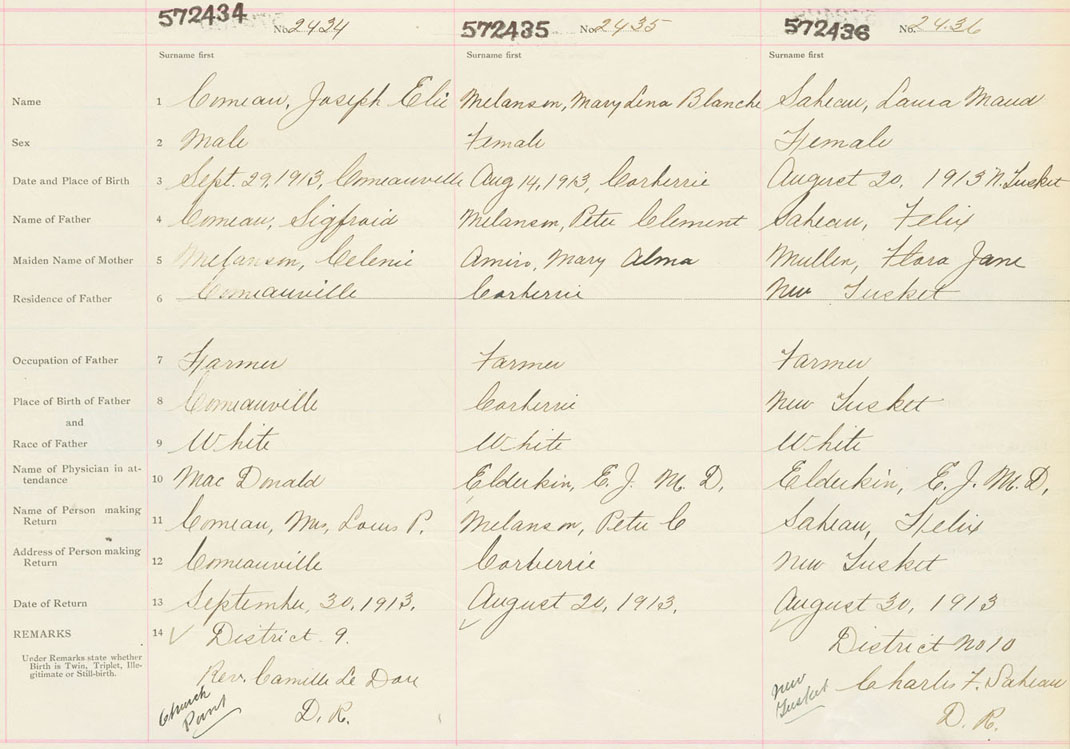 572434 No. 2434 572435 No. 2435 572436 No. 2436
Surname first Surname first Surname first
Name 1 Comeau, Joseph Elie Melanson, Mary Lena Blanche Saheau, Laura Maud
Sex 2 Male Female Female
Date and Place of Birth 3 Sept. 29, 1913, Comeauville Aug 14, 1913, Corberrie August 20, 1913 N. Tusket
Name of Father 4 Comeau, Sigfroid Melanson, Peter Clement Saheau, Felix
Maiden Name of Mother 5 Melanson, Celenie Amiro, Mary Alma Mullen, Flora Jane
Residence of Father 6 Comeauville Corberrie New Tusket
Occupation of Father 7 Farmer Farmer Farmer
Place of Birth of Father 8 Comeauville Corberrie New Tusket
and
Race of Father 9 White White White
Name of Physician in at-
tendance 10 Mac Donald Elderkin, E. J. M. D. Elderkin, E. J. M. D.
Name of Person making
Return 11 Comeau, Mrs, Louis P. Melanson, Peter C Saheau, Felix
Address of Person making
Return 12 Comeauville Corberrie New Tusket
Date of Return 13 September, 30, 1913. August 20, 1913. August 30, 1913
REMARKS 14 District 9. District No 10
Under Remarks state whether
Birth is Twin, Triplet, Ille-
gitimate or Still-birth.
Rev. Camille Le Dore Charles F. Saheau
Church
Point
D. R.
New
Tusket
D. R.